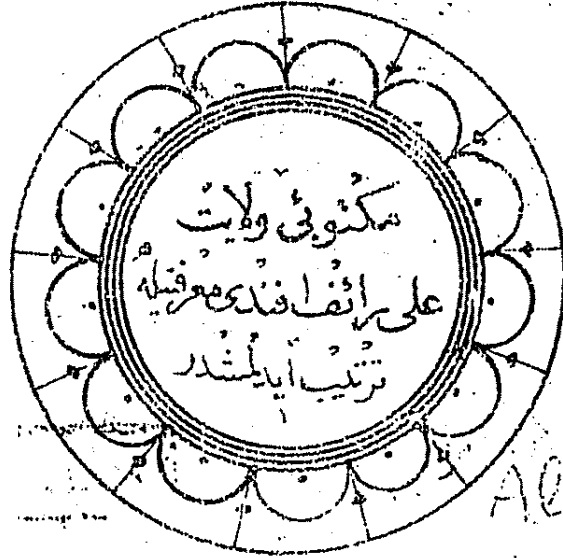 مكتوبئ ولايت
على رائف افندى معرفتيله
ترتيب ايدلمشدر